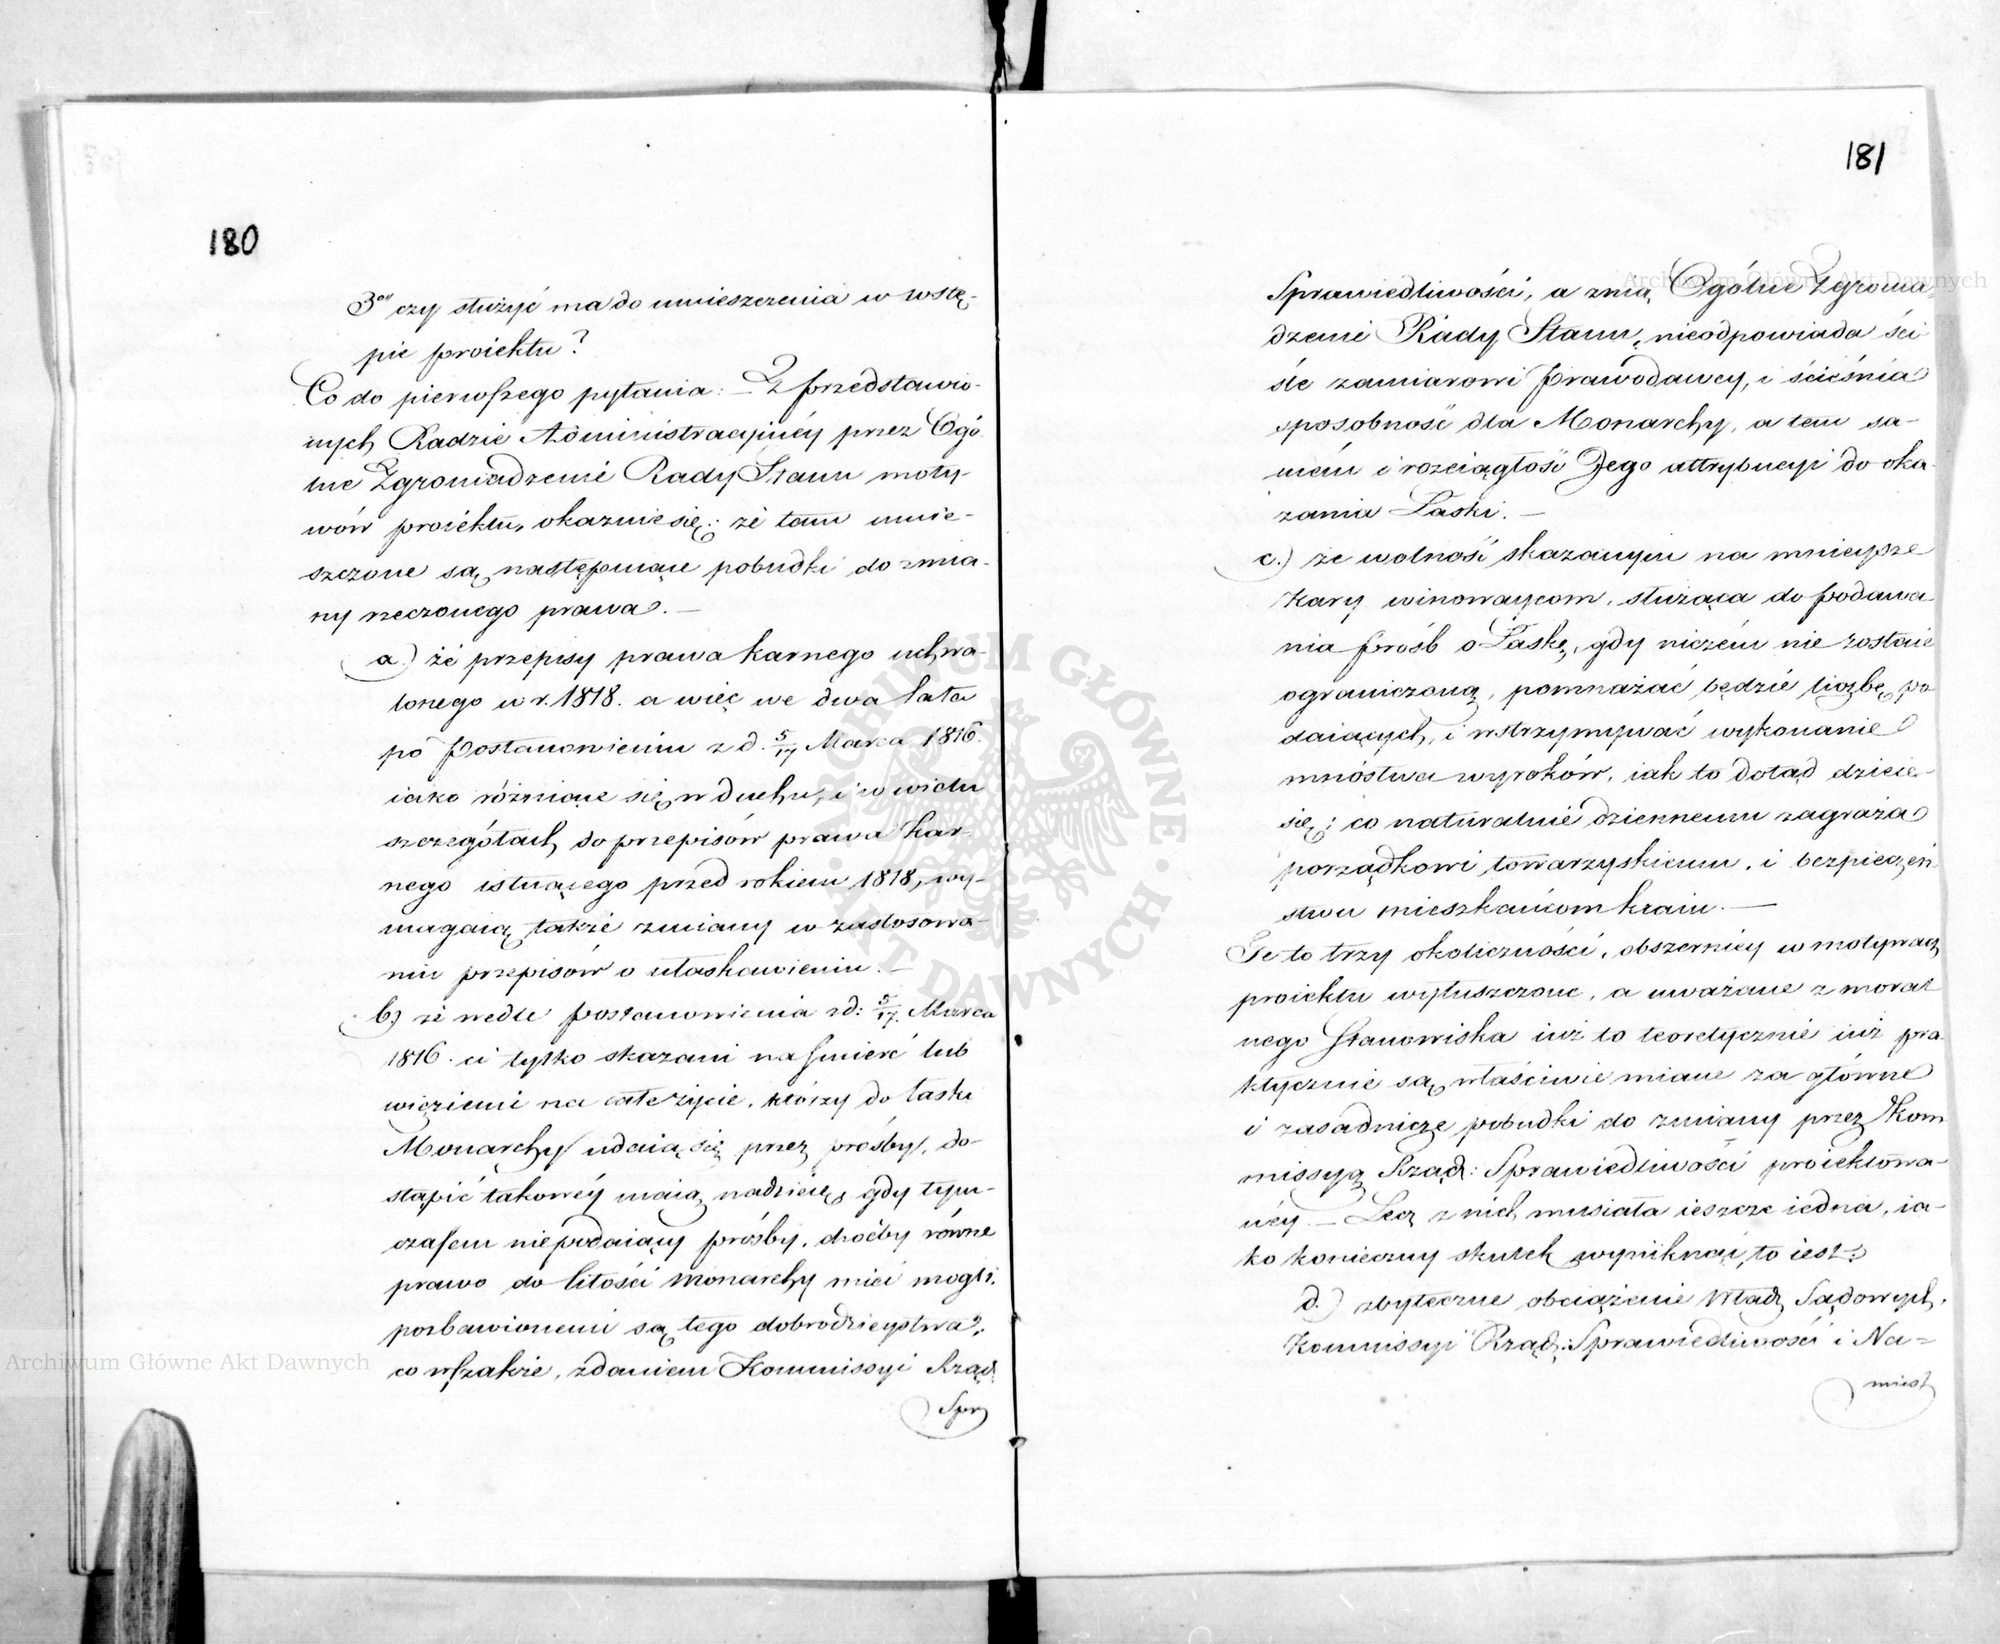 180
3º czy służyć ma do umieszczenia w wstę-
pie proiektu?
Co do pierwszego pytania: — Z przedstawio-
nych Radzie Administracyinéy przez Ogó
lne Zgromadzenie Rady Stanu moty-
wów proiektu, okazuie się: że tam umie-
szczone są następuiące pobudki do zmia-
ny rzeczonego prawa. —
a.) że przepisy prawa karnego uchwa-
lonego w r. 1818. a więc we dwa lata
po Postanowieniu z d. 5/17 Marca 1816.
iako różniące się w duchu, i w wielu
szczegółach do przepisów prawa kar-
nego istnącego przed rokiem 1818, wy-
magaią także zmiany w zastosowa-
niu przepisów o ułaskawieniu. —
b.) że wedle postanowienia z d: 5/17. Marca
1816. ci tylko skazani na śmierć lub
więzienie na całe życie, którzy do łaski
Monarchy udaią się przez prośby, do-
stąpić takowéy maią nadzieię, gdy tym-
czasem niepodaiący prośby, choćby równe
prawo do litości Monarchy mieć mogli,
pozbawionemi są tego dobrodzieystwa;
co wszakże, zdaniem Kommissyi Rząd
Spr
Archiwum Główne Akt Dawnych
181
Archiwum Główne Akt Dawnych
Sprawiedliwości, a z nią Ogólne Zgroma-
dzenie Rady Stanu, nieodpowiada ści
śle zamiarowi Prawodawcy, i ścieśnia
sposobność dla Monarchy, a tem sa-
mém i rozciągłość Jego attrybucyi do oka-
zania Łaski. —
c.) że wolność skazanym na mnieysze
kary winowaycom, służąca do podawa-
nia prośb o Łaskę, gdy niczém nie zostaie
ograniczoną, pomnażać będzie liczbę po
daiących, i wstrzymywać wykonanie
mnóstwa wyroków, iak to dotąd dzieie-
się; co naturalnie dziennemu zagraża
porządkowi towarzyskiemu, i bezpieczeń-
stwu mieszkańcom kraiu. —
Te to trzy okoliczności, obszerniéy w motywach
proiektu wyłuszczone, a uważane z moral
nego Stanowiska iuż to teoretycznie iuż pra-
ktycznie są właściwie miane za główne
i zasadnicze pobudki do zmiany przez Kom
missyą Rząd: Sprawiedliwości proiektowa-
néy. — Lecz z nich musiała ieszcze iedna, ia-
ko konieczny skutek wyniknąć, to iest:
d.) zbyteczne obciążenie Władz Sądowych,
Kommissyi Rząd: Sprawiedliwości i Na-
miest
ARCHIWUM GŁÓWNE AKT DAWNYCH